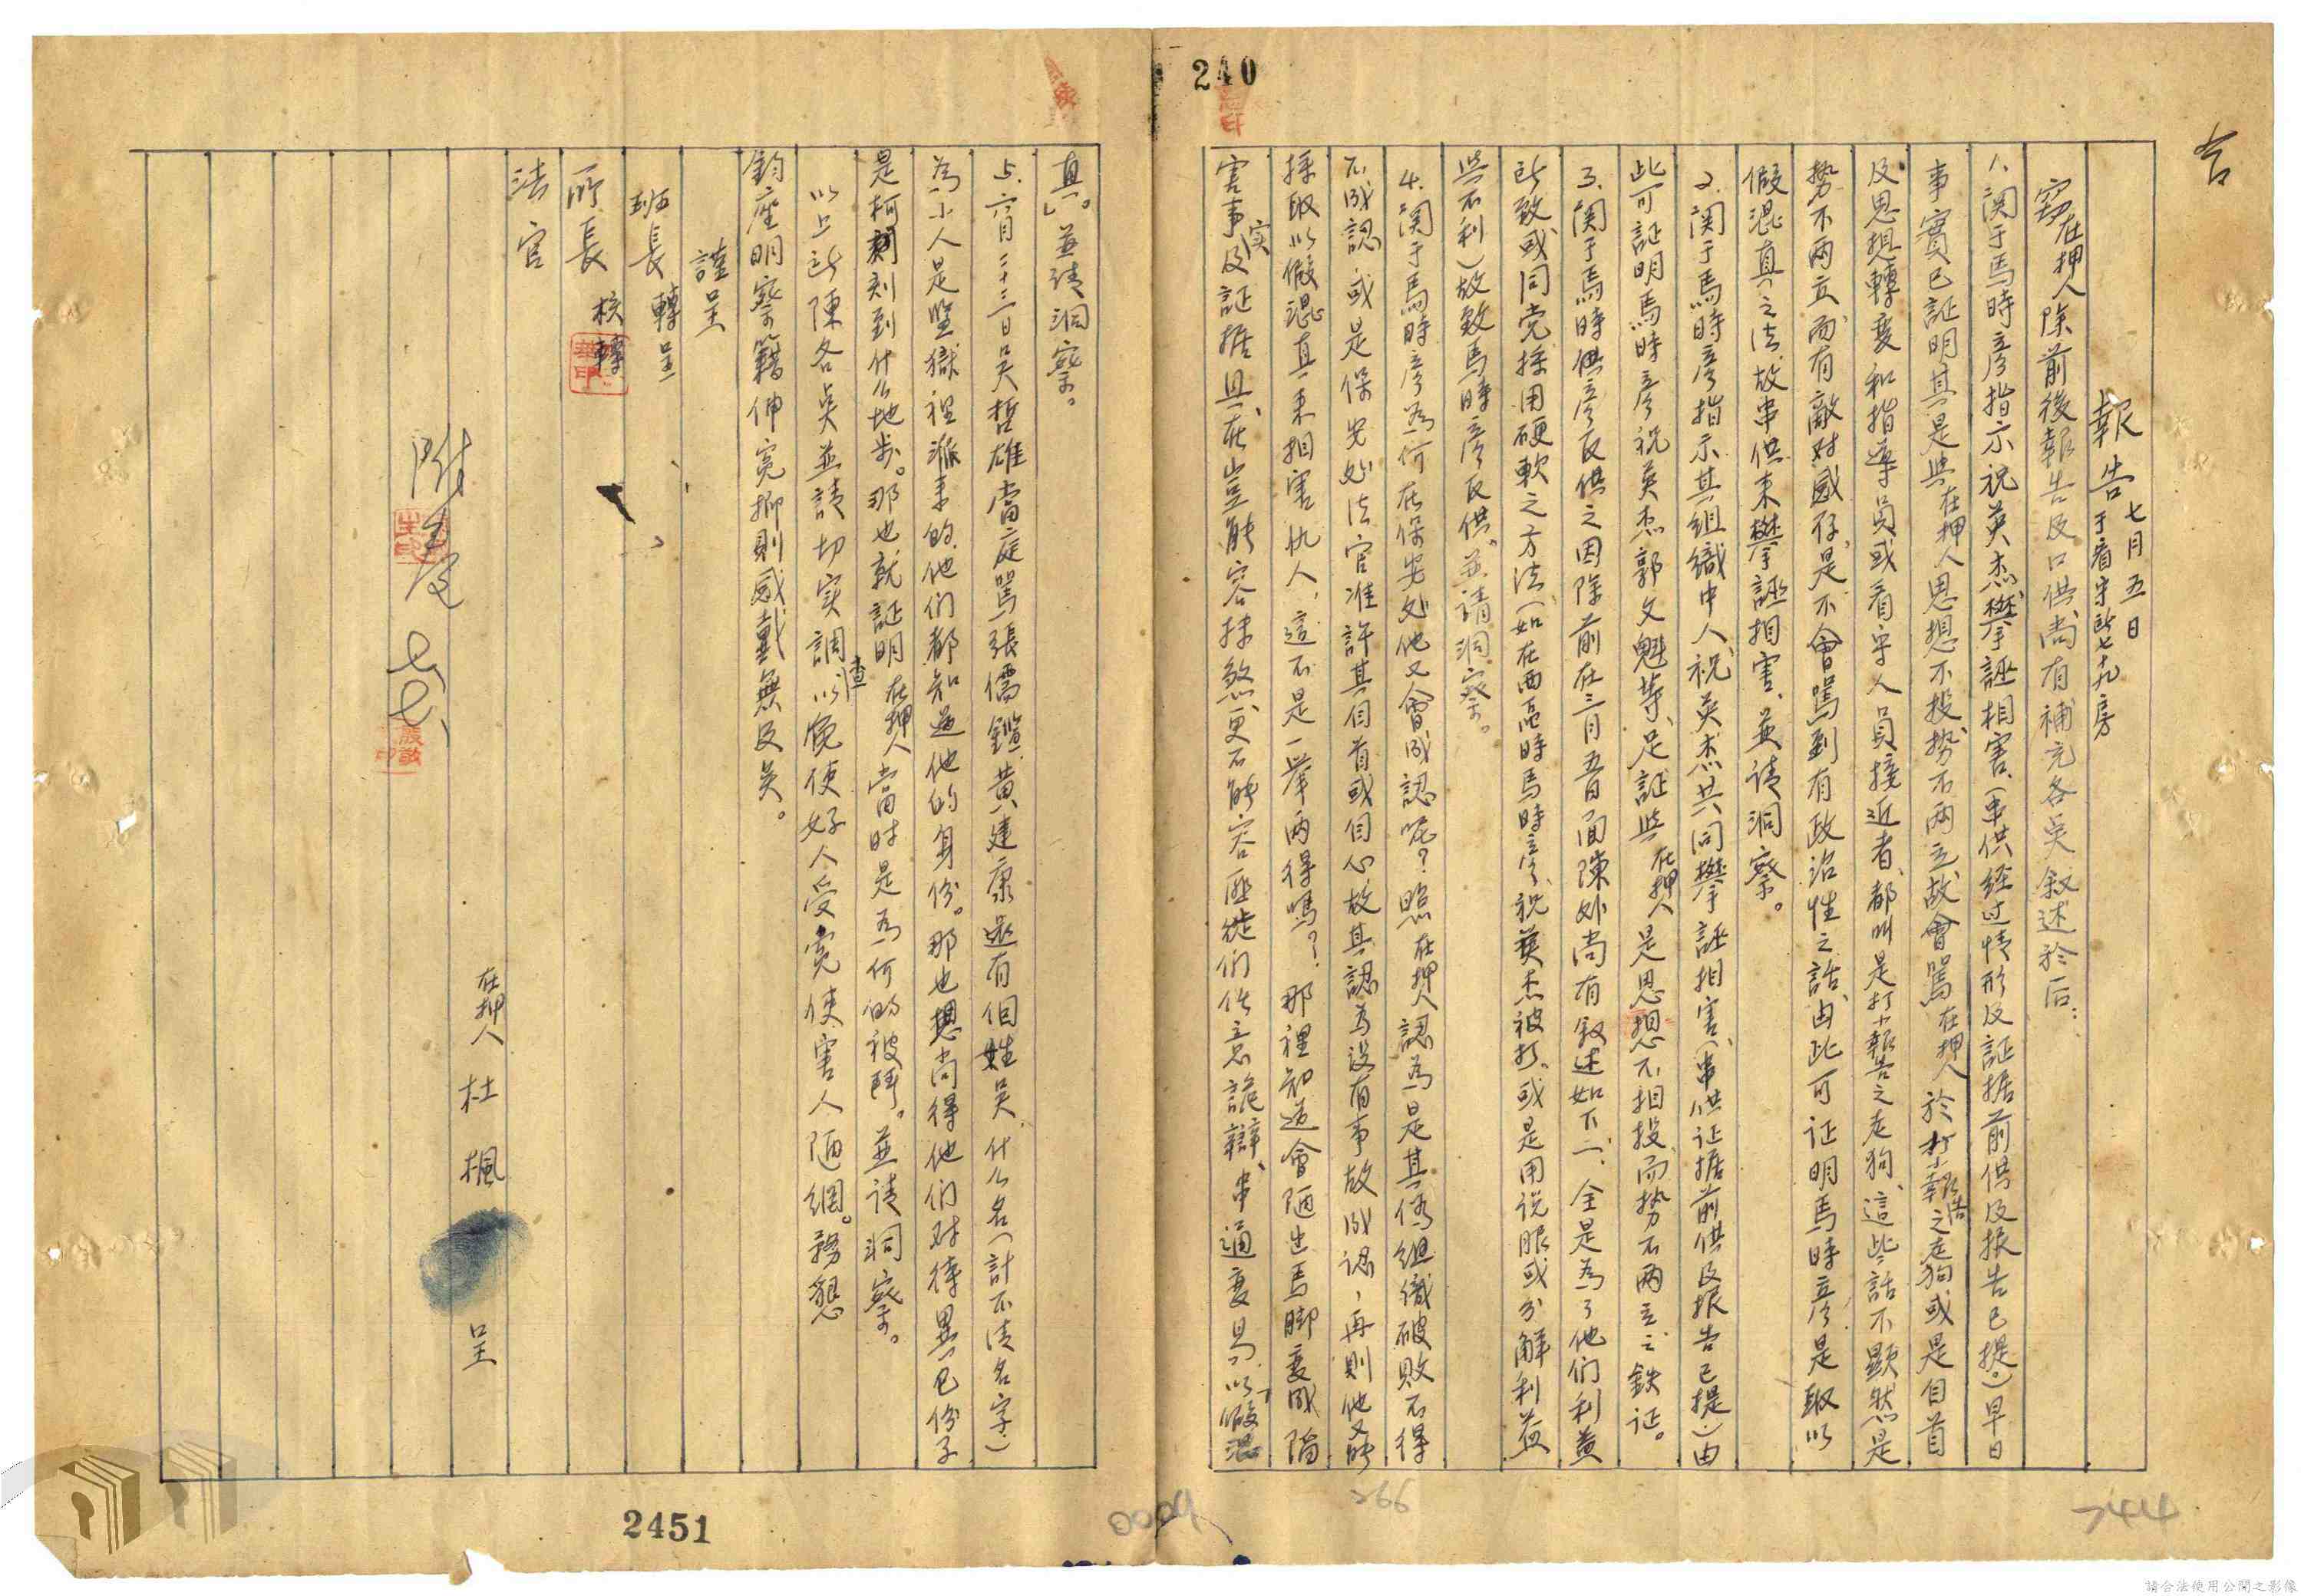 240
報告 七月五日 于看守所七十九房
竊在押人除前後報告及口供尚有補充各吳叙述於后：
1. 関于馬時彦指示祝英杰攀誣相害、(串供経过情形及証据前供及报告已提。)早日
事實已証明其是與在押人思想不投、势不両立、故會罵在押人於打小報告之走狗或是自首
及思想轉変和指導員或看守人員接近者、都叫是打小報告之走狗、這些話不顕然是
势不両立、而有敵对感存、是不會罵到有政治性之話、由此可证明馬時彦是取以
假混真之法、故串供来攀誣相害、並请洞察。
2. 関于馬時彦指示其組織中人、祝英杰共同攀誣相害、(串供证据前供及报告已提)由
此可証明馬時彦祝英杰郭文魁等、足証與在押人是思想不相投、而势不両立之鉄证。
3. 関于馬時彦反供之因除前在三月五日面陳外尚有叙述如下一、全是為了他们利益
所致或同党採用硬軟之方法(如在西區時馬時彦、祝英杰被打、或是用说服或分解利益
與不利)故致馬時彦反供、並请洞察。
4. 関于馬時彦為何在保安处他又會成認呢？照在押人認為是其偽組織破敗不得
不成認或是保安处法官准許其自首或自心故其認為没有事故成认，再則他又能
採取以假混真来相害仇人，這不是一舉両得嗎？那裡知道會陋出馬脚変成陷
害事实及証据具在豈能容抹煞更不能容匪徒们任意詭辯、串通変易、以「假混
真」。並请洞察。
5. 六月二十三日吴哲雄當庭罵張儒鑑、黄建康还有個姓吴、什么名(計不清名字)
為小人是監獄裡派来的、他们都知道他的身份。那也想尚得他们对待異己份子
是柯刻到什么地步。那也就証明在押人當时是為何的被鬥。並请洞察。
以上所陳各吳並請切实調查以免使好人受寃使害人陋網。務懇
鈞座明察籍伸寃抑則感戴無及吴。
謹呈
班長 轉呈
所長 核轉
法官
在押人 杜楓 呈
2451
0009
266
7444
請合法使用公開之影像